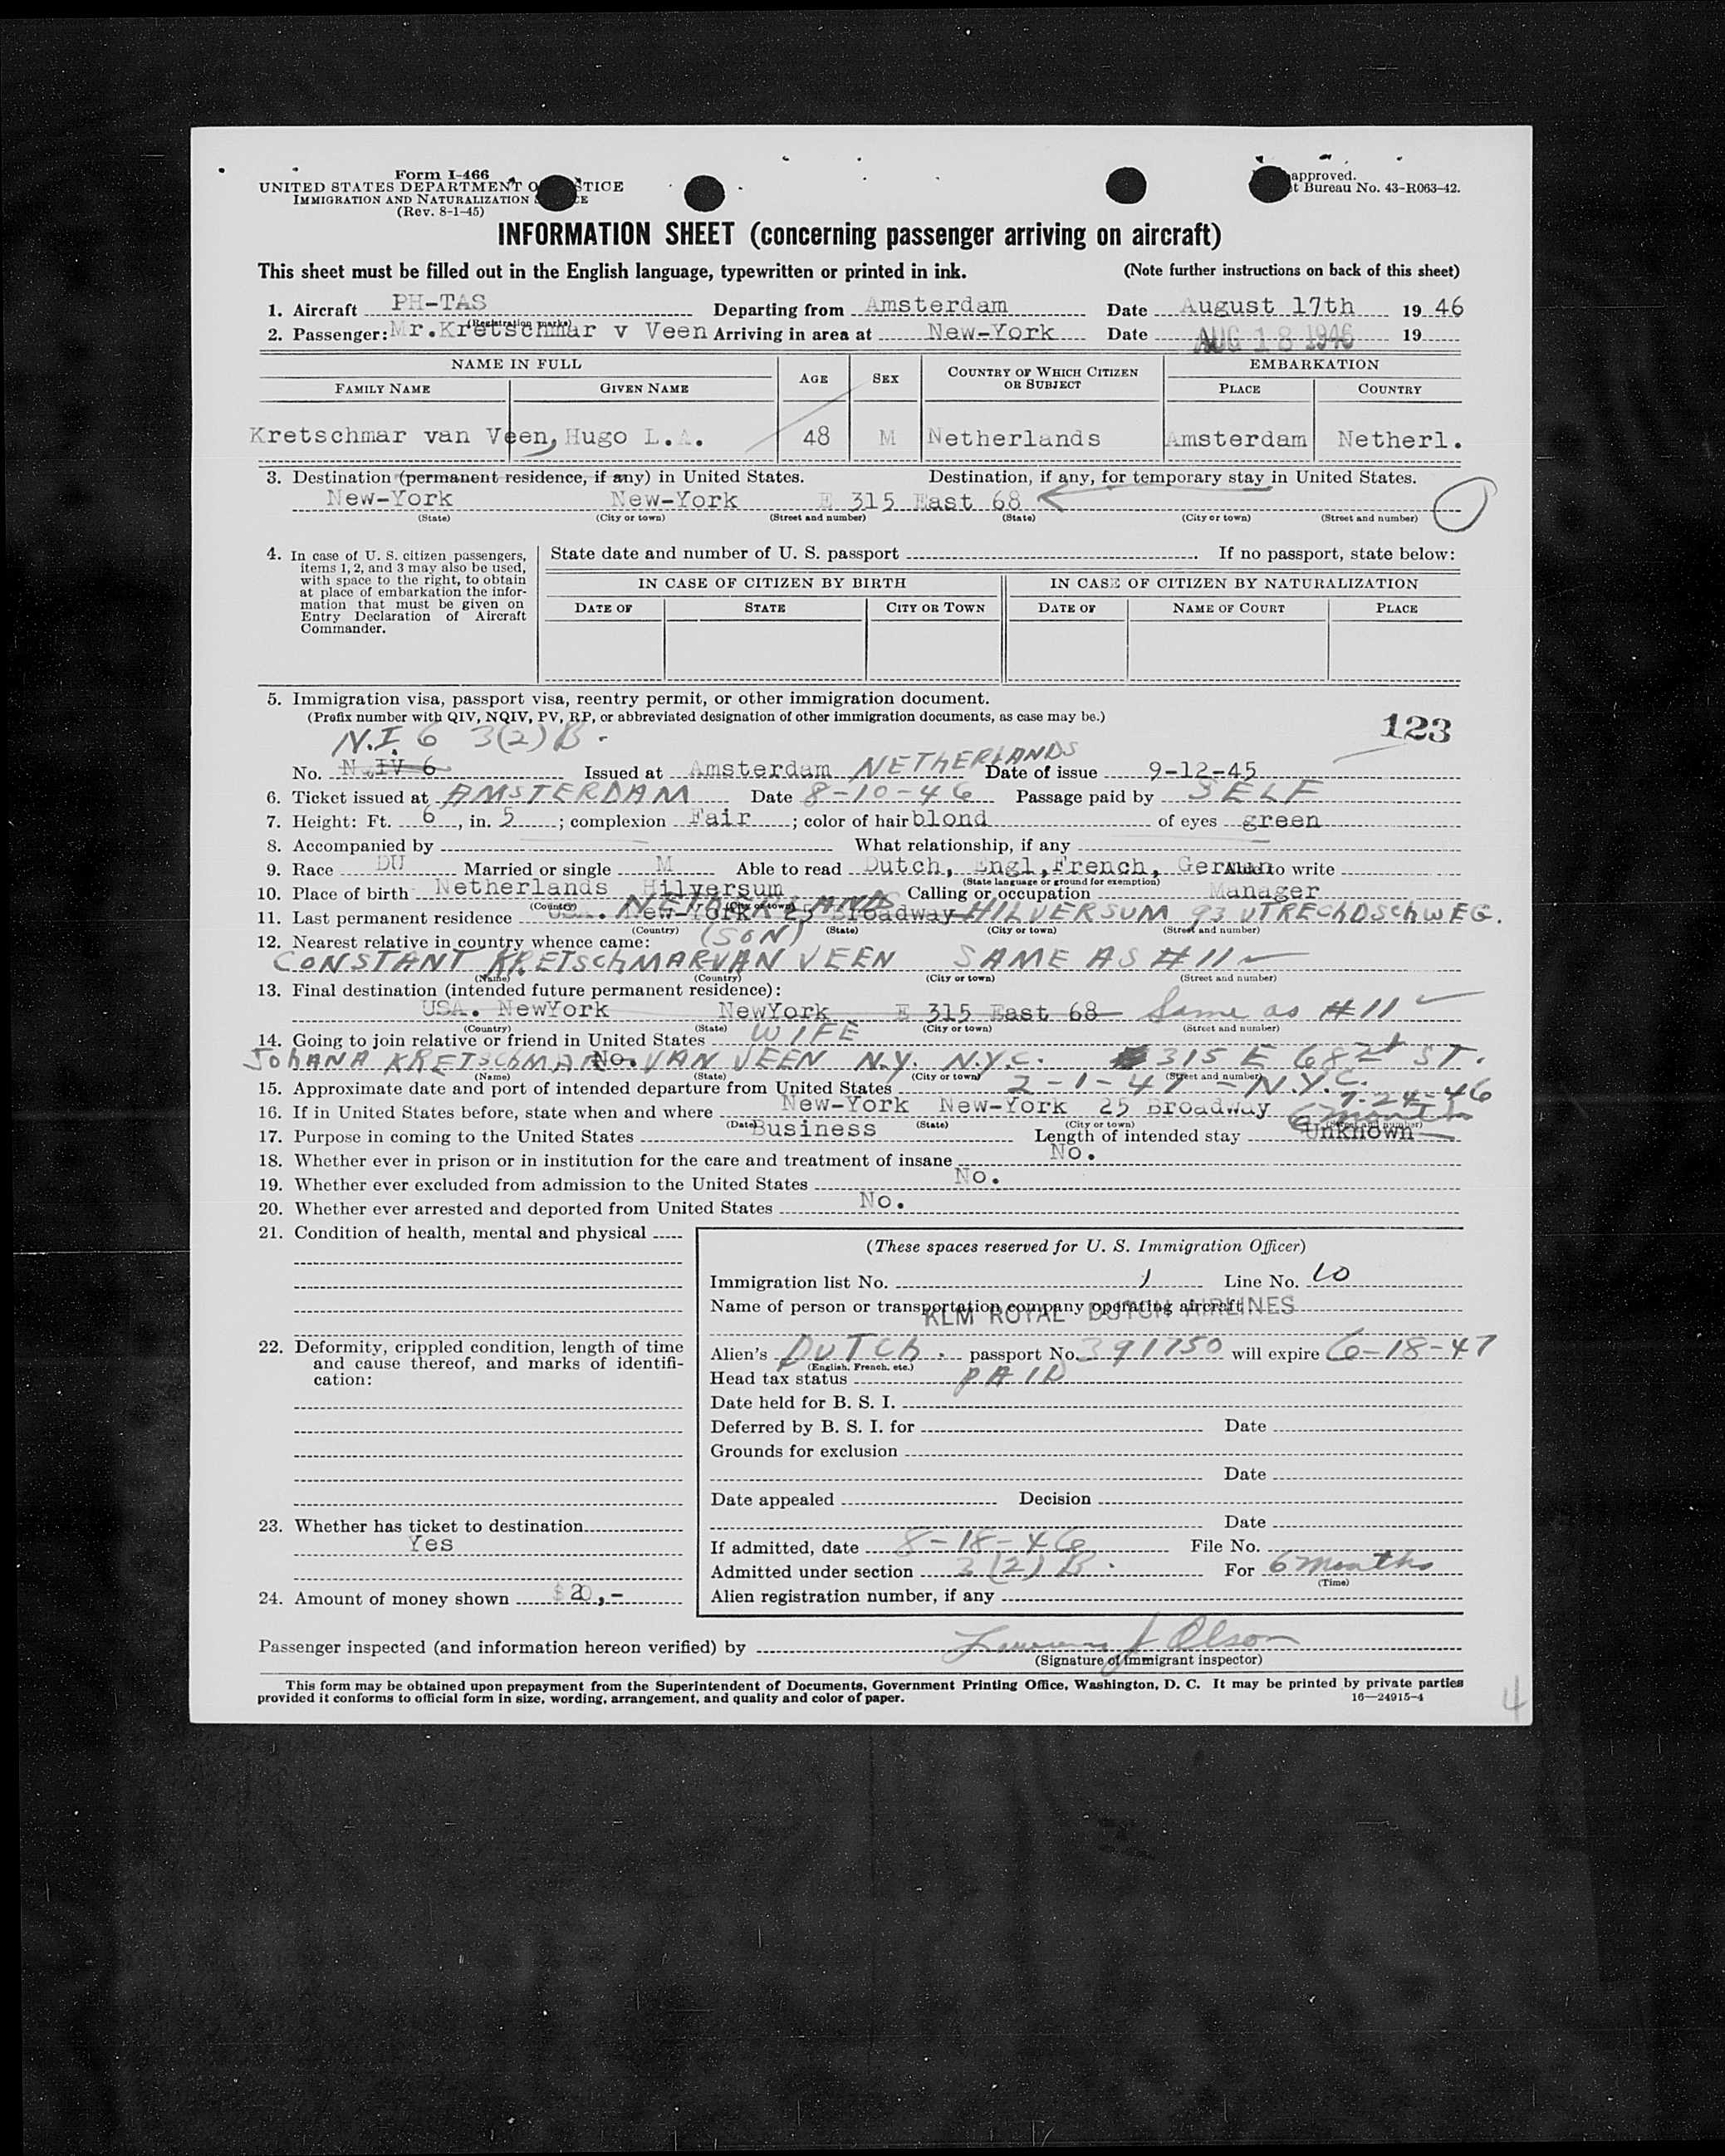 Form I-466
UNITED STATES DEPARTMENT O STICE
IMMIGRATION AND NATURALIZATION S CE
(Rev. 8-1-45)
approved.
t Bureau No. 43-R063-42.
INFORMATION SHEET (concerning passenger arriving on aircraft)
This sheet must be filled out in the English language, typewritten or printed in ink. (Note further instructions on back of this sheet)
1. Aircraft PH-TAS Departing from Amsterdam Date August 17th 19 46
(Registration marks)
2. Passenger: Mr.Kretschmar v Veen Arriving in area at New-York Date AUG 18 1946 19
NAME IN FULL AGE SEX COUNTRY OF WHICH CITIZEN OR SUBJECT EMBARKATION
FAMILY NAME GIVEN NAME PLACE COUNTRY
Kretschmar van Veen, Hugo L.A. 48 M Netherlands Amsterdam Netherl.
3. Destination (permanent residence, if any) in United States. Destination, if any, for temporary stay in United States.
New-York New-York E 315 East 68
(State) (City or town) (Street and number) (State) (City or town) (Street and number)
4. In case of U. S. citizen passengers, items 1, 2, and 3 may also be used, with space to the right, to obtain at place of embarkation the information that must be given on Entry Declaration of Aircraft Commander.
State date and number of U. S. passport If no passport, state below:
IN CASE OF CITIZEN BY BIRTH IN CASE OF CITIZEN BY NATURALIZATION
DATE OF STATE CITY OR TOWN DATE OF NAME OF COURT PLACE
5. Immigration visa, passport visa, reentry permit, or other immigration document.
(Prefix number with QIV, NQIV, PV, RP, or abbreviated designation of other immigration documents, as case may be.)
123
N.I. 6 3(2)B.
No. N.IV 6 Issued at Amsterdam NETHERLANDS Date of issue 9-12-45
6. Ticket issued at AMSTERDAM Date 8-10-46 Passage paid by SELF
7. Height: Ft. 6, in. 5; complexion Fair; color of hair blond of eyes green
8. Accompanied by What relationship, if any
9. Race DU Married or single M Able to read Dutch, Engl,French, German Able to write
(State language or ground for exemption)
10. Place of birth Netherlands Hilversum Calling or occupation Manager
(Country) (City or town)
11. Last permanent residence USA. New-York 25 Broadway NETHERLANDS HILVERSUM 93 UTRECHDSCHWEG.
(Country) (State) (City or town) (Street and number)
12. Nearest relative in country whence came: (SON)
CONSTANT KRETSCHMAR VAN VEEN SAME AS #11
(Name) (Country) (City or town) (Street and number)
13. Final destination (intended future permanent residence):
USA. NewYork NewYork E 315 East 68 Same as #11
(Country) (State) (City or town) (Street and number)
14. Going to join relative or friend in United States WIFE
No. JOHANA KRETSCHMAR VAN VEEN N.Y. N.Y.C. 315 E 68 ST.
(Name) (State) (City or town) (Street and number)
15. Approximate date and port of intended departure from United States 2-1-47 - N.Y.C.
16. If in United States before, state when and where New-York New-York 25 Broadway 7-24-46
(Date) (State) (City or town) (Street and number)
17. Purpose in coming to the United States Business Length of intended stay Unknown 6 months
18. Whether ever in prison or in institution for the care and treatment of insane No.
19. Whether ever excluded from admission to the United States No.
20. Whether ever arrested and deported from United States No.
21. Condition of health, mental and physical
22. Deformity, crippled condition, length of time and cause thereof, and marks of identification:
23. Whether has ticket to destination
Yes
24. Amount of money shown $20,-
(These spaces reserved for U. S. Immigration Officer)
Immigration list No. 1 Line No. 10
Name of person or transportation company operating aircraft KLM ROYAL DUTCH AIRLINES
Alien's DUTCH. passport No. 391750 will expire 6-18-47
(English, French, etc.)
Head tax status PAID
Date held for B. S. I.
Deferred by B. S. I. for Date
Grounds for exclusion
Date
Date appealed Decision
Date
If admitted, date 8-18-46 File No.
Admitted under section 3(2)B. For 6 months
(Time)
Alien registration number, if any
Passenger inspected (and information hereon verified) by J Olson
(Signature of immigrant inspector)
This form may be obtained upon prepayment from the Superintendent of Documents, Government Printing Office, Washington, D. C. It may be printed by private parties
provided it conforms to official form in size, wording, arrangement, and quality and color of paper. 16—24915-4
4